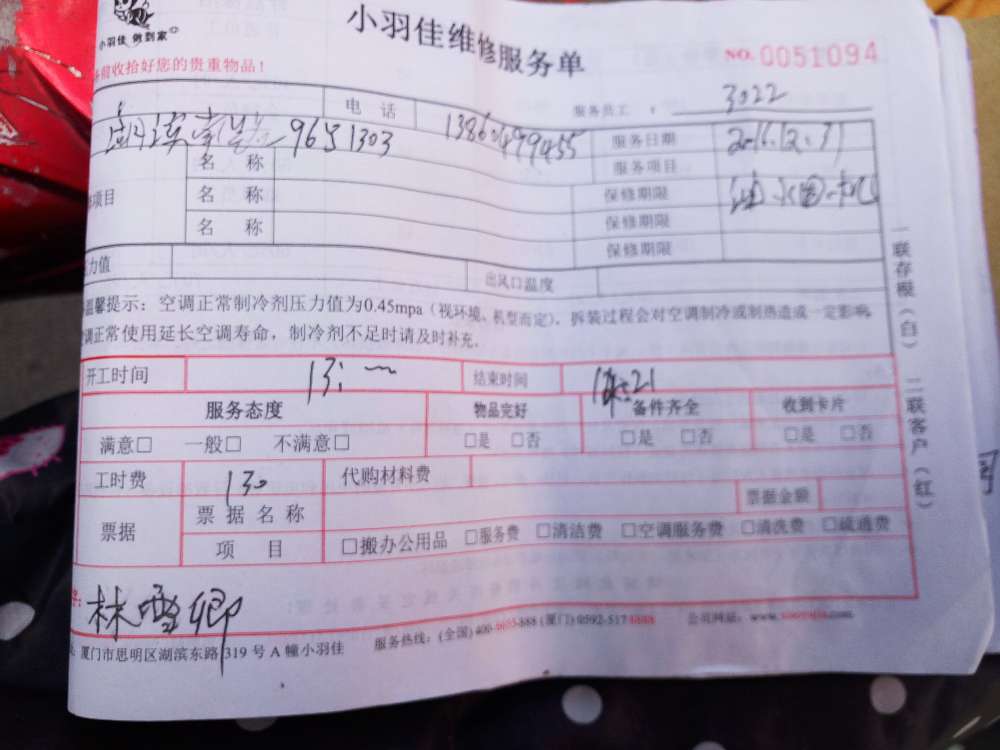 小羽佳 做到家
小羽佳维修服务单
NO. 0051094
收拾好您的贵重物品！
服务员工： 3022
电话 13860499455
9651303
服务日期 2016.12.31
名称 服务项目
项目 名称 保修期限
名称 保修期限
保修期限
力值 出风口温度
温馨提示：空调正常制冷剂压力值为0.45mpa（视环境、机型而定），拆装过程会对空调制冷或制热造成一定影响，
调正常使用延长空调寿命，制冷剂不足时请及时补充。
开工时间 13: 结束时间
服务态度 物品完好 备件齐全 收到卡片
满意□ 一般□ 不满意□ □是 □否 □是 □否 □是 □否
工时费 130 代购材料费
票据 票据名称 票据金额
项目 □搬办公用品 □服务费 □清洁费 □空调服务费 □清洗费 □疏通费
林雪卿
厦门市思明区湖滨东路319号A幢小羽佳 服务热线：(全国) 400-8855-888 (厦门) 0592-517
公司网站：www.
一联存根（白） 二联客户（红）